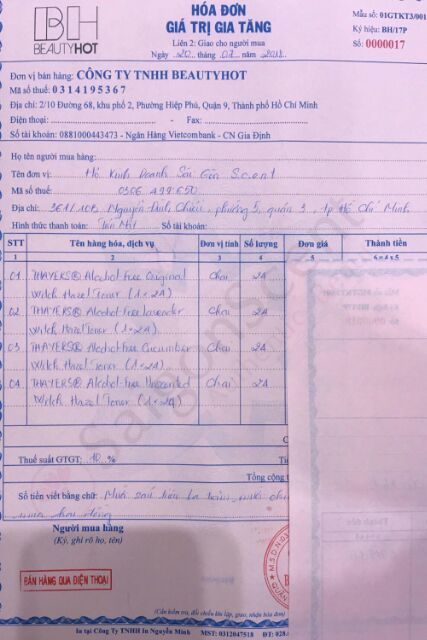 BH
BEAUTYHOT
HÓA ĐƠN
GIÁ TRỊ GIA TĂNG
Liên 2: Giao cho người mua
Ngày 20 tháng 07 năm 2018
Mẫu số: 01GTKT3/001
Ký hiệu: BH/17P
Số: 0000017
Đơn vị bán hàng: CÔNG TY TNHH BEAUTYHOT
Mã số thuế: 0314195367
Địa chỉ: 2/10 Đường 68, khu phố 2, Phường Hiệp Phú, Quận 9, Thành phố Hồ Chí Minh
Điện thoại: - Fax:
Số tài khoản: 0881000443473 - Ngân Hàng Vietcombank - CN Gia Định
Họ tên người mua hàng:
Tên đơn vị: Hộ Kinh Doanh Sài Gòn Scent
Mã số thuế: 0306 499 650
Địa chỉ: 361/10B Nguyễn Đình Chiểu, phường 5, quận 3, tp Hồ Chí Minh
Hình thức thanh toán: Tiền Mặt Số tài khoản:
STT Tên hàng hóa, dịch vụ Đơn vị tính Số lượng Đơn giá Thành tiền
1 2 3 4 5 6=4x5
01 THAYERS® Alcohol-free Original Chai 24
Witch Hazel Toner (1x24)
02 THAYERS® Alcohol-free Lavender Chai 24
Witch Hazel Toner (1x24)
03 THAYERS® Alcohol-free Cucumber Chai 24
Witch Hazel Toner (1x24)
04 THAYERS® Alcohol-free Unscented Chai 24
Witch Hazel Toner (1x24)
Thuế suất GTGT: 10 %
Tổng cộng
Số tiền viết bằng chữ: Mười sáu triệu ba trăm
đồng
Người mua hàng
(Ký, ghi rõ họ, tên)
BÁN HÀNG QUA ĐIỆN THOẠI
M.S.D.N:03
(Cần kiểm tra, đối chiếu khi lập, giao, nhận hóa đơn)
In tại Công Ty TNHH In Nguyễn Minh MST: 0312047518 ĐT: 028.
SaigonScent